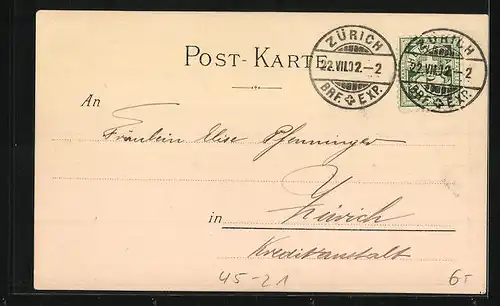 ZÜRICH
22.VII.02.–2
BRF. EXP.
ZÜRICH
22.VII.02.–2
BRF. EXP.
POST-KARTE
An
Fräulein Elise Pfenninger
in Zürich
Kreditanstalt
45-21
6.-